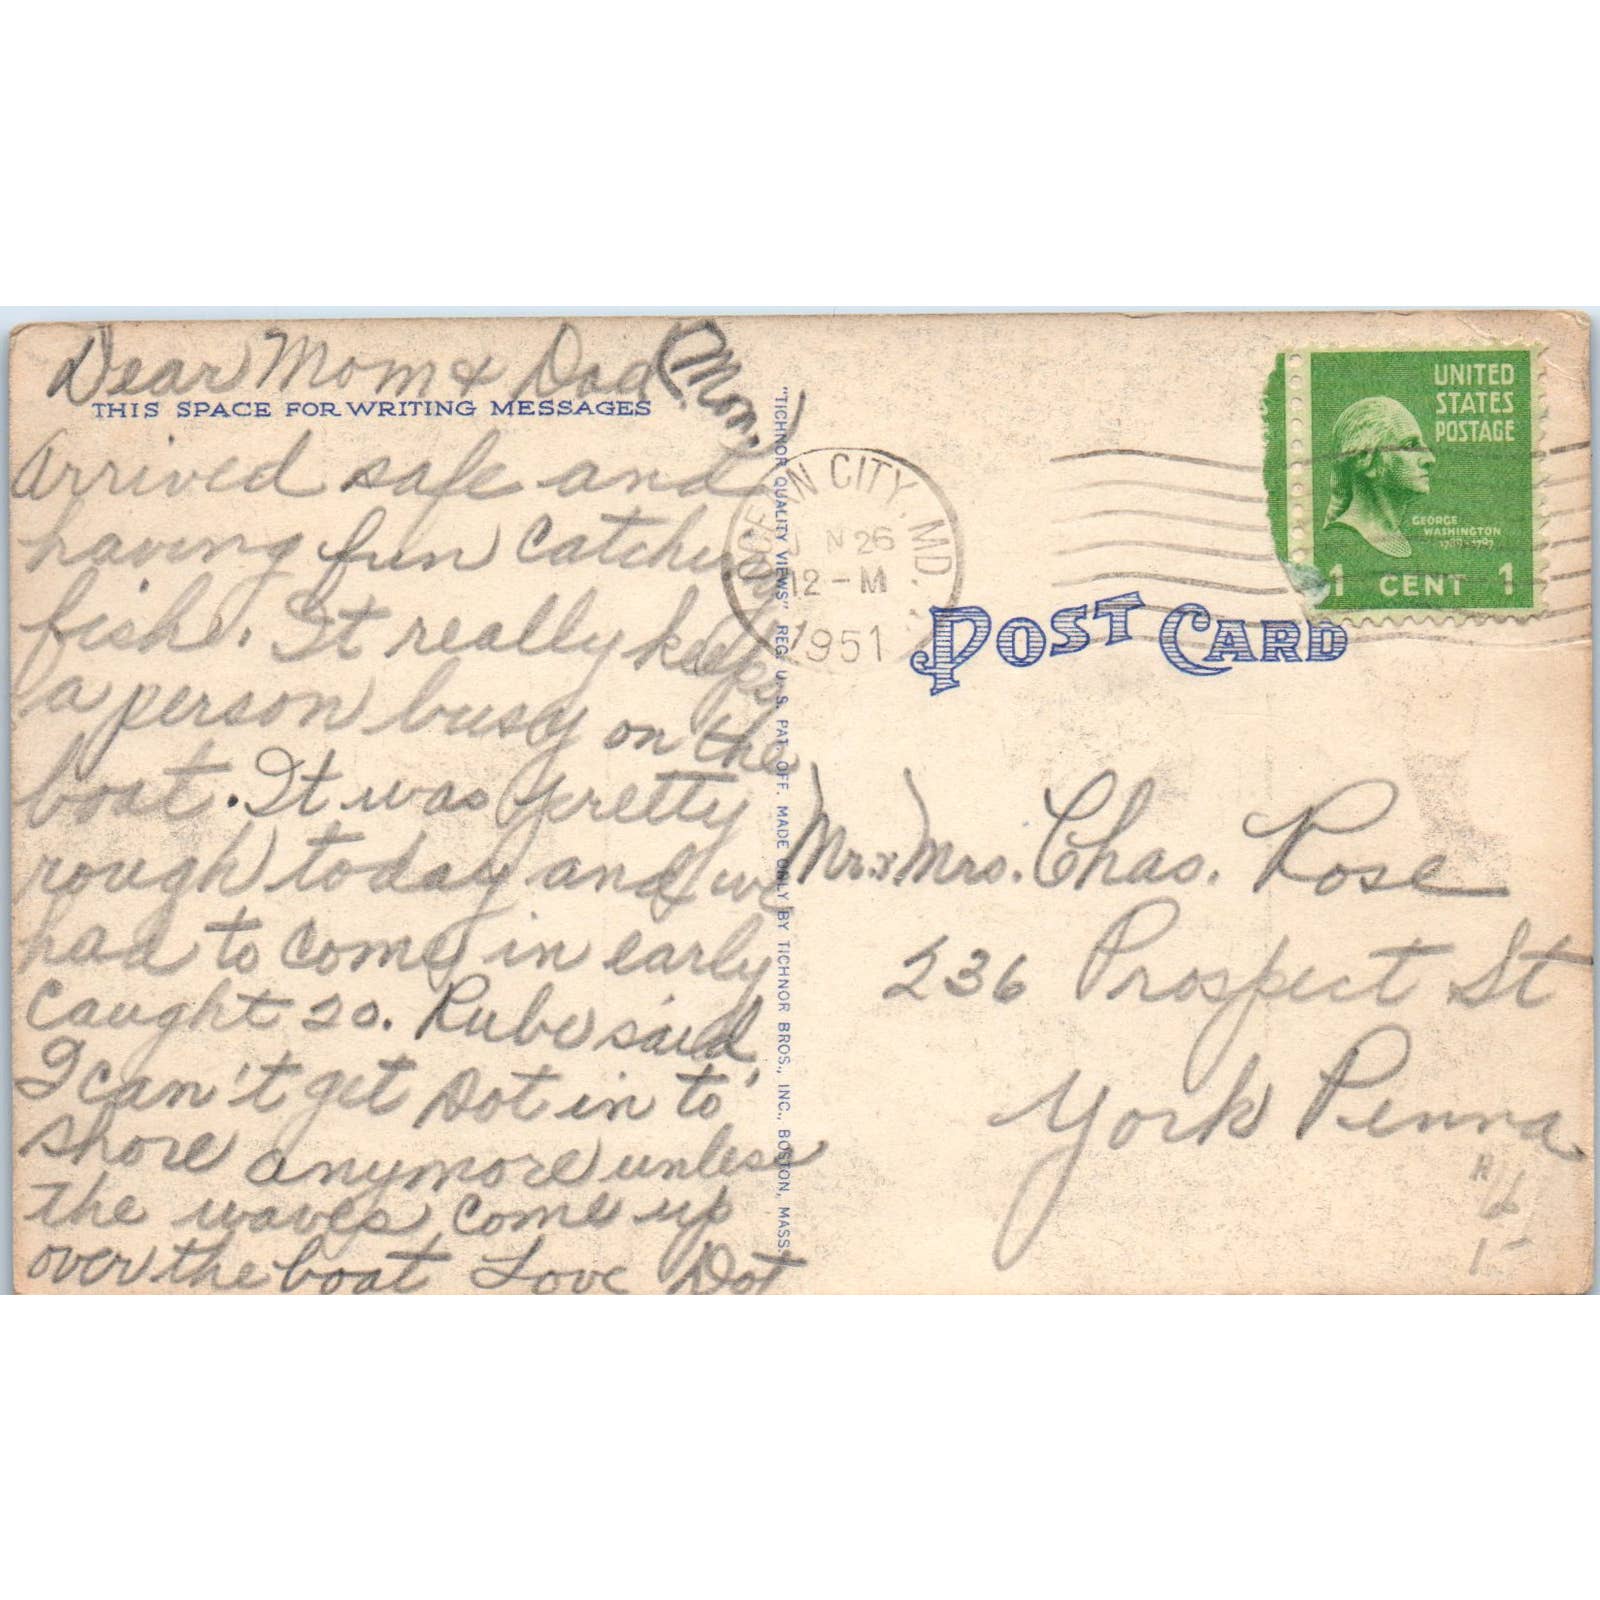 Dear Mom & Dad (Mon.)
THIS SPACE FOR WRITING MESSAGES
Arrived safe and
having fun catching
fish. It really keeps
a person busy on the
boat. It was pretty
rough today and we
had to come in early
Caught 20. Rube said,
I can't get Dot in to
shore anymore unless
the waves come up
over the boat Love Dot
"TICHNOR QUALITY VIEWS" REG. U. S. PAT. OFF. MADE ONLY BY TICHNOR BROS., INC., BOSTON, MASS.
OCEAN CITY, MD.
JUN 26
12-M
1951
UNITED
STATES
POSTAGE
GEORGE
WASHINGTON
1789-1797
1 CENT 1
POST CARD
Mr. & Mrs. Chas. Rose
236 Prospect St
York Penna
15